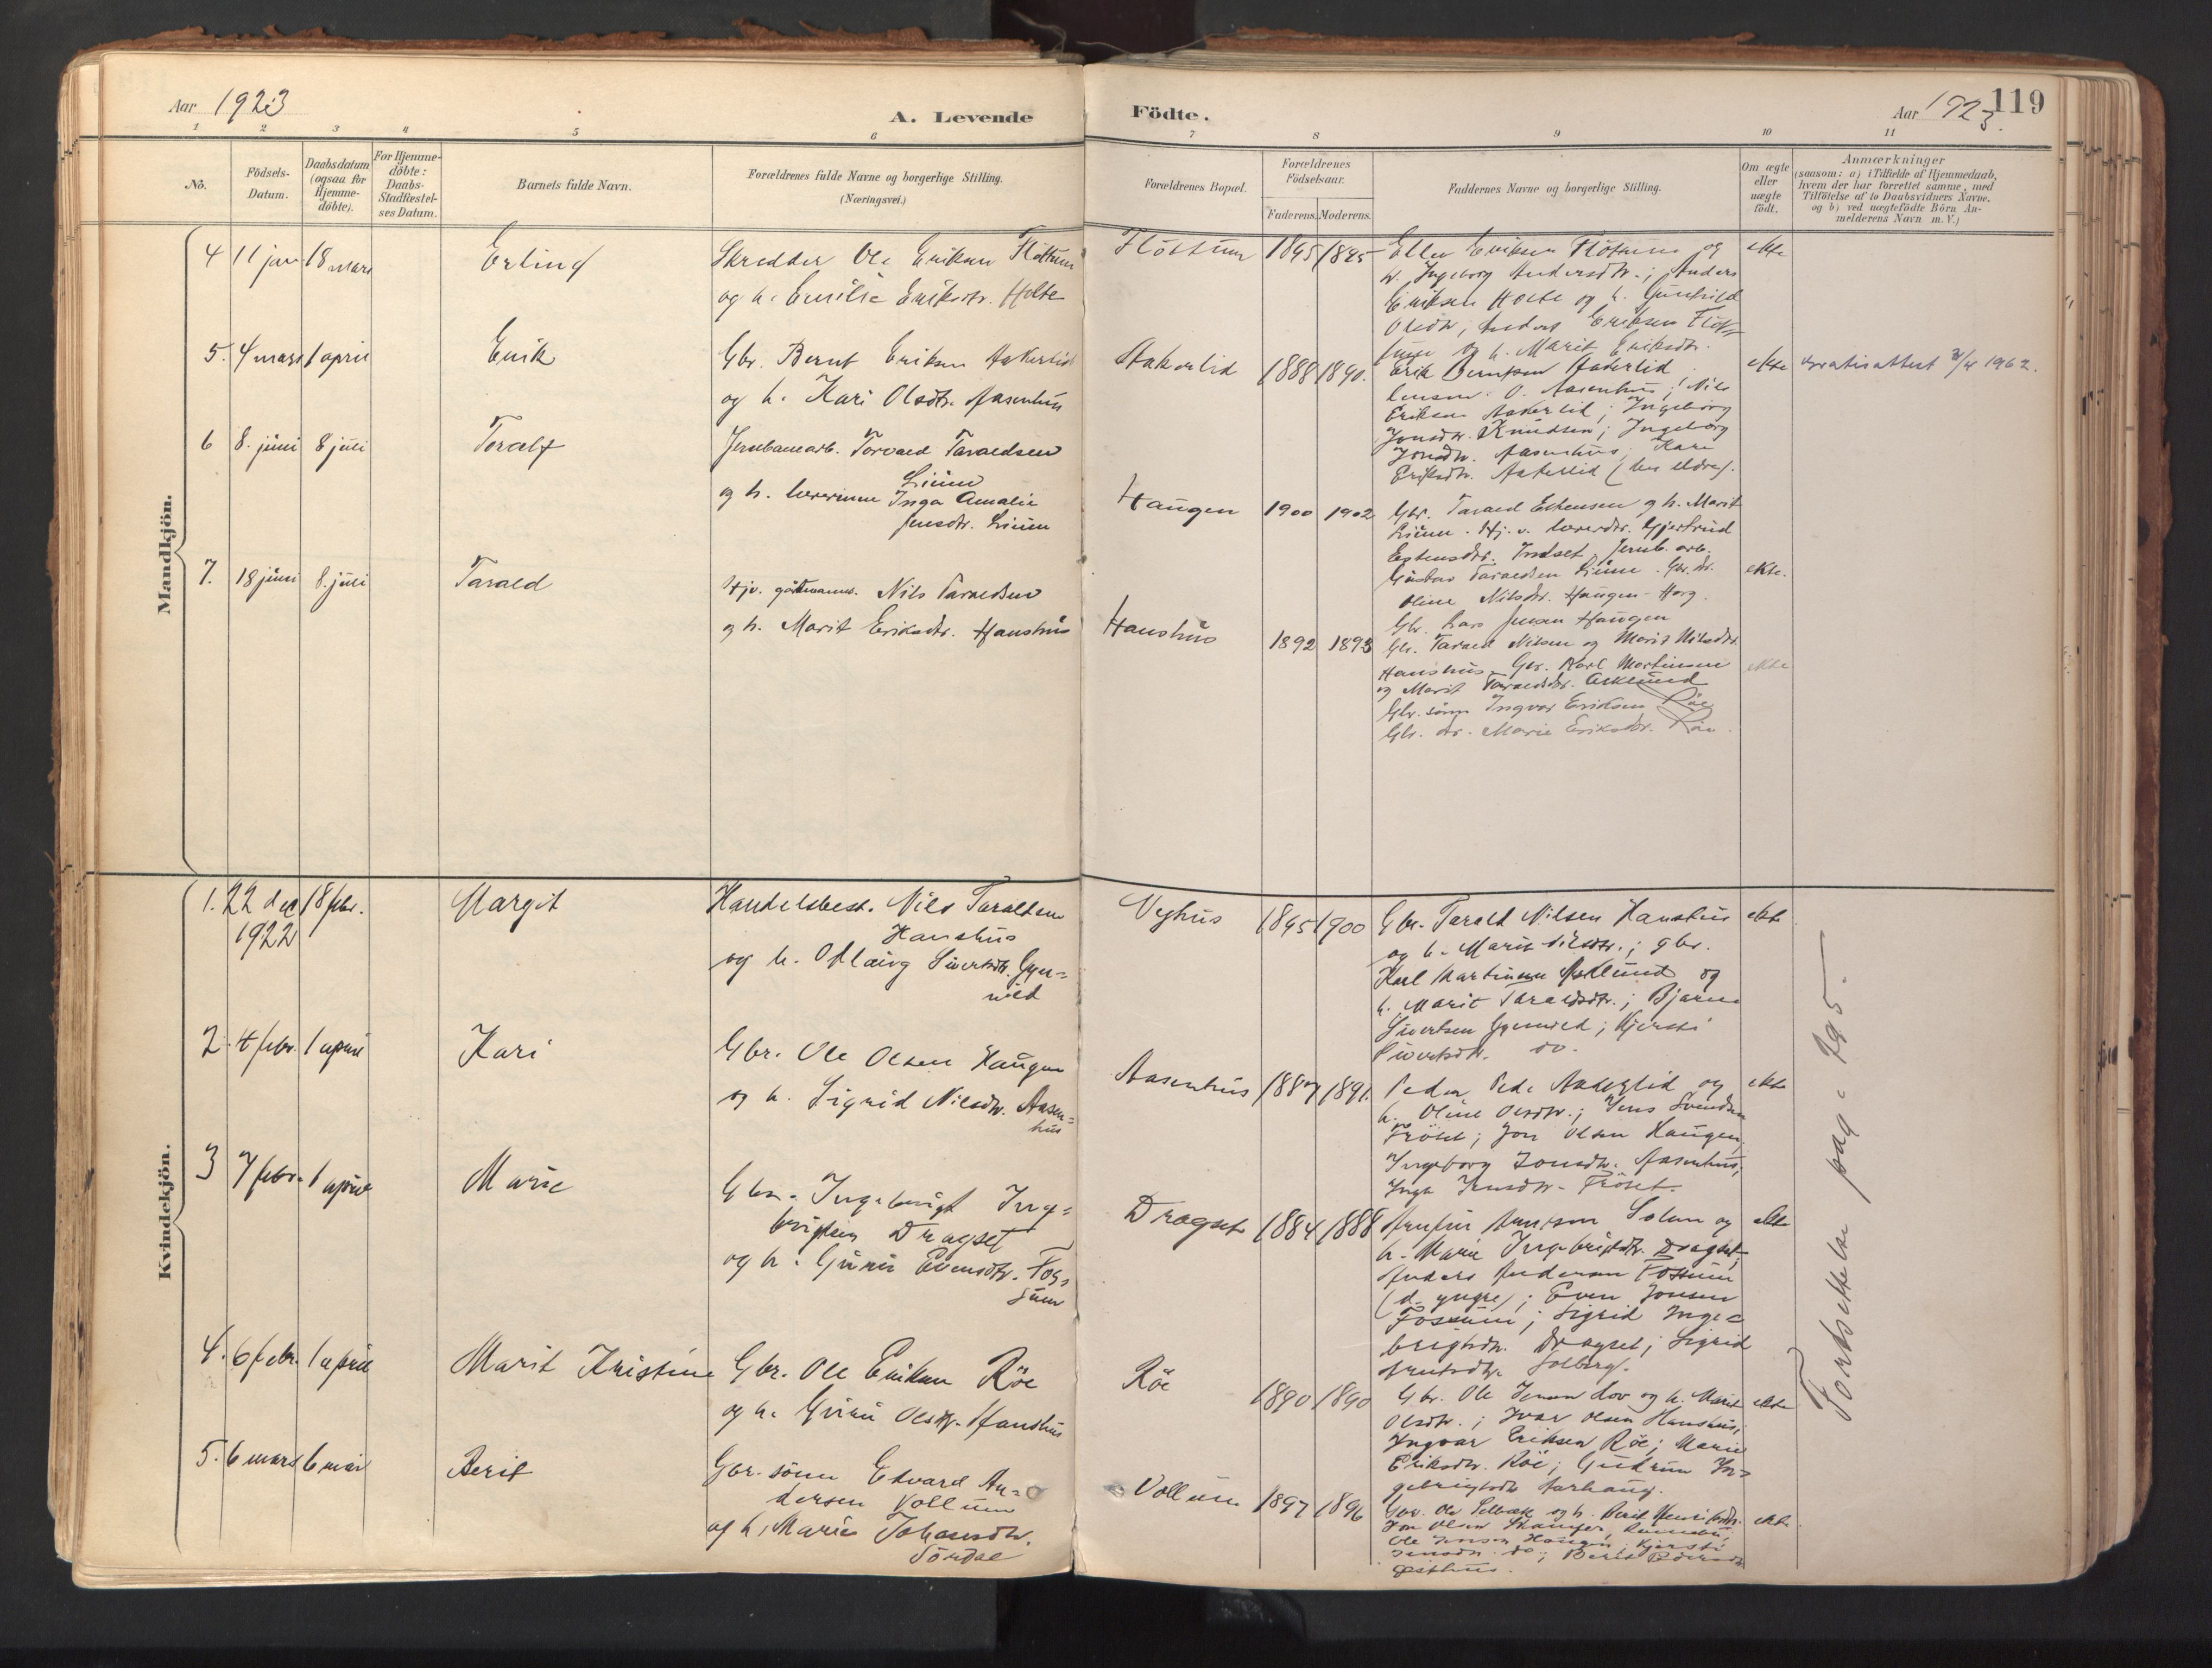 Aar 1923
A. Levende
Födte.
Aar 1923.
119
1 2 3 4 5 6 7 8 9 10 11
No.
Födsels-
Datum.
Daabsdatum
(ogsaa for
Hjemme-
döbte).
For Hjemme-
döbte:
Daabs-
Stadfæstel-
ses Datum.
Barnets fulde Navn.
Forældrenes fulde Navne og borgerlige Stilling.
(Næringsvei.)
Forældrenes Bopæl.
Forældrenes
Födselsaar.
Faderens. Moderens.
Faddernes Navne og borgerlige Stilling.
Om ægte
eller
uægte
födt.
Anmærkninger
(saasom: a) i Tilfælde af Hjemmedaab,
hvem der har forrettet samme, med
Tilföielse af to Daabsvidners Navne,
og b) ved uægtefödte Börn An-
melderens Navn m. V.)
Mandkjön.
4 11 jan 18 mars
Erling
Skredder Ole Eriksen Flöttum
og h. Emilie Eriksdtr. Holte
Flöttum
1895 1895
Ellev Eriksen Flöttum og
h. Ingeborg Andersdtr.; Anders
Eriksen Holte og h. Gunhild
Olsdtr; Anders Eriksen Flöt-
tum og h. Marit Eriksdtr.
ekte
5. 4 mars 1 april
Erik
Gbr. Bernt Eriksen Aakerlid
og h. Kari Olsdtr. Aasenhus
Aakerlid
1888 1890.
Erik Berntsen Aakerlid
O. Aasenhus; Nils
Eriksen Aakerlid; Ingeborg
Jonsdtr. Knudsen; Ingeborg
Jonsdtr. Aasenhus; Kari
Eriksdtr. Aakerlid (den eldre).
ekte
Gratisattest 3/4 1962.
6 8. juni 8 juli
Toralf
Jernbanearb. Torvald Taraldsen
Liium
og h. lærerinne Inga Amalie
Jensdtr. Liium
Haugen
1900 1902
Gbr. Tarald Estensen og h. Marit
Liium. Hj. v. lærerdtr. Gjertrud
Estensdtr. Indset, Jernb. arb.
Gustav Taraldsen Liium. Gbr. dr.
Oline Nilsdtr. Haugen-Horg.
Gbr. Lars Jensen Haugen
ekte.
7. 18 juni 8. juli
Tarald
Nils Taraldsen
og h. Marit Eriksdtr. Hanshus
Hanshus
1892 1893
Gbr. Tarald Nilsen og Marit Nilsdtr.
Hanshus. Gbr. Karl Martinsen
og Marit Taraldsdtr. Asklund
Gbr. sönn Ingvar Eriksen Röe
Gbr. dr. Marie Eriksdtr. Röe.
ekte
Kvindekjön.
1. 22 des 18 febr.
1922
Margit
Handelsbest. Nils Taraldsen
Hanshus
og h. Sivertsdtr. Gyn=
nild
Veghus
1895 1900
Gbr. Tarald Nilsen Hanshus
og h. Marit Nilsdtr.; gbr.
Karl Martinsen Asklund og
h. Marit Taraldsdtr.; Bjarne
Sivertsen Gynnild; Kjersti
Sivertsdtr. do.
ekte
2. 4 febr. 1 april
Kari
Gbr. Ole Olsen Haugen
og h. Sigrid Nilsdtr. Aasen=
hus
Aasenhus
1887 1891.
Peder Aakerlid og
h. Oline Olsdtr.; Jens Svendsen
Fröset; Jon Olsen Haugen,
Ingeborg Jonsdtr. Aasenhus;
Inga Jensdtr. Fröset.
ekte
3 7 febr. 1 april
Marie
Gbr. Ingebrigt Inge=
brigtsen Dragset
og h. Guru Evensdtr. Fos=
sum
Dragset
1884 1888
Arntsen Solem og
h. Marie Ingebrigtsdtr. Dragset;
Anders Andersen Fossum
(d. yngre); Even Jonsen
Fossum; Sigrid Inge=
brigtsdtr. Dragset; Sigrid
Arntsdtr. Solberg.
ekte
4. 6 febr. 1 april
Marit Kristine
Gbr. Ole Eriksen Röe
og h. Guru Olsdtr. Hanshus
Röe
1890 1890
Gbr. Ole Jensen Hov og h. Marit
Olsdtr.; Ivar Olsen Hanshus;
Ingvar Eriksen Röe; Marie
Eriksdtr. Röe; Gudrun In-
gebrigtsdtr Aarhaug.
ekte
5. 6 mars 6 mai
Berit
Gbr. sönn Edvard An=
dersen Vollum
og h. Marie Johansdtr.
Sördal
Vollum
1897 1896
Gbr. Ole og h. Berit Henriksdtr.
Jon Olsen
Ole Jensen Haugen, Kjersti
Jensdtr. do.; Berit Pedersdtr
Østhus.
ekte
Fortsettelse pag. 295.